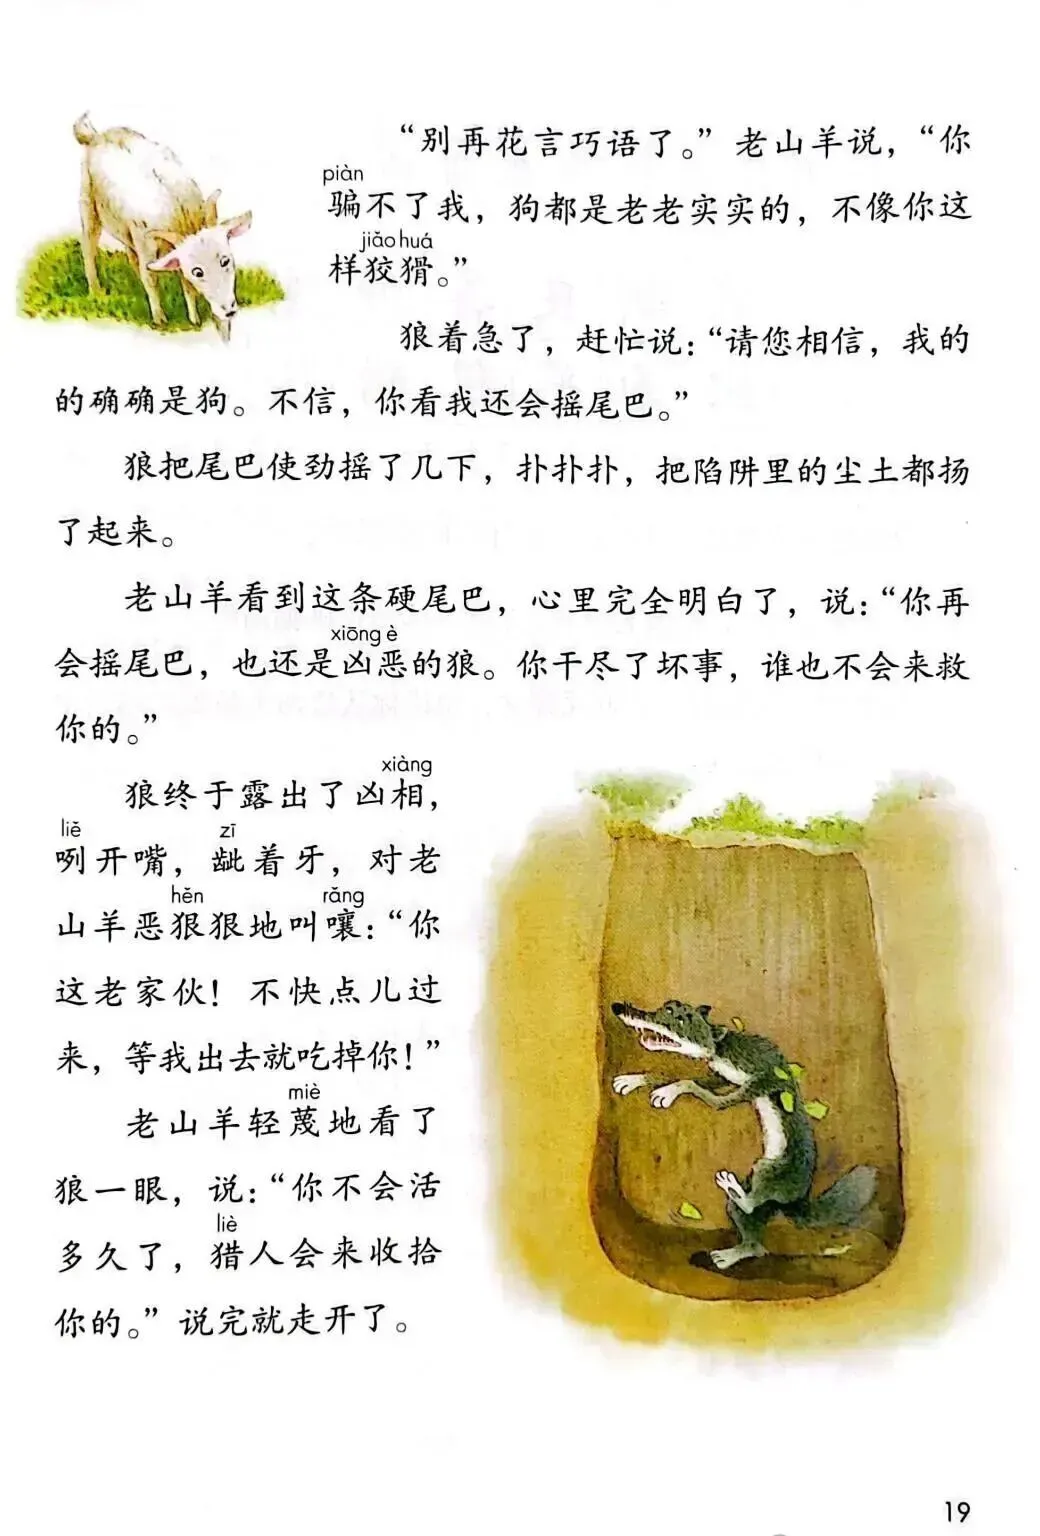 “别再花言巧语了。”老山羊说，“你
piàn
骗不了我，狗都是老老实实的，不像你这
jiǎo huá
样狡猾。”
狼着急了，赶忙说：“请您相信，我的
的确确是狗。不信，你看我还会摇尾巴。”
狼把尾巴使劲摇了几下，扑扑扑，把陷阱里的尘土都扬
了起来。
老山羊看到这条硬尾巴，心里完全明白了，说：“你再
xiōng è
会摇尾巴，也还是凶恶的狼。你干尽了坏事，谁也不会来救
你的。”
xiàng
狼终于露出了凶相，
liě zī
咧开嘴，龇着牙，对老
hěn rǎng
山羊恶狠狠地叫嚷：“你
这老家伙！不快点儿过
来，等我出去就吃掉你！”
miè
老山羊轻蔑地看了
狼一眼，说：“你不会活
liè
多久了，猎人会来收拾
你的。”说完就走开了。
19